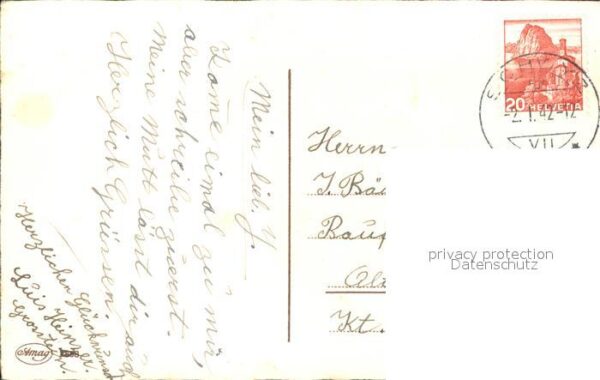 Mein lieb. Y.
Kome eimal zu mir,
aber schreibe zuerst.
Meine Mutt lässt dir auch
Herzlich Grüssen.
Herzlichen Glückwunsch
Luis Heinzer
Herrn
J. Bä
Baup
Kt.
20 HELVETIA
SCHWYZ
-2.I.42-12
VII
privacy protection
Datenschutz
Amag